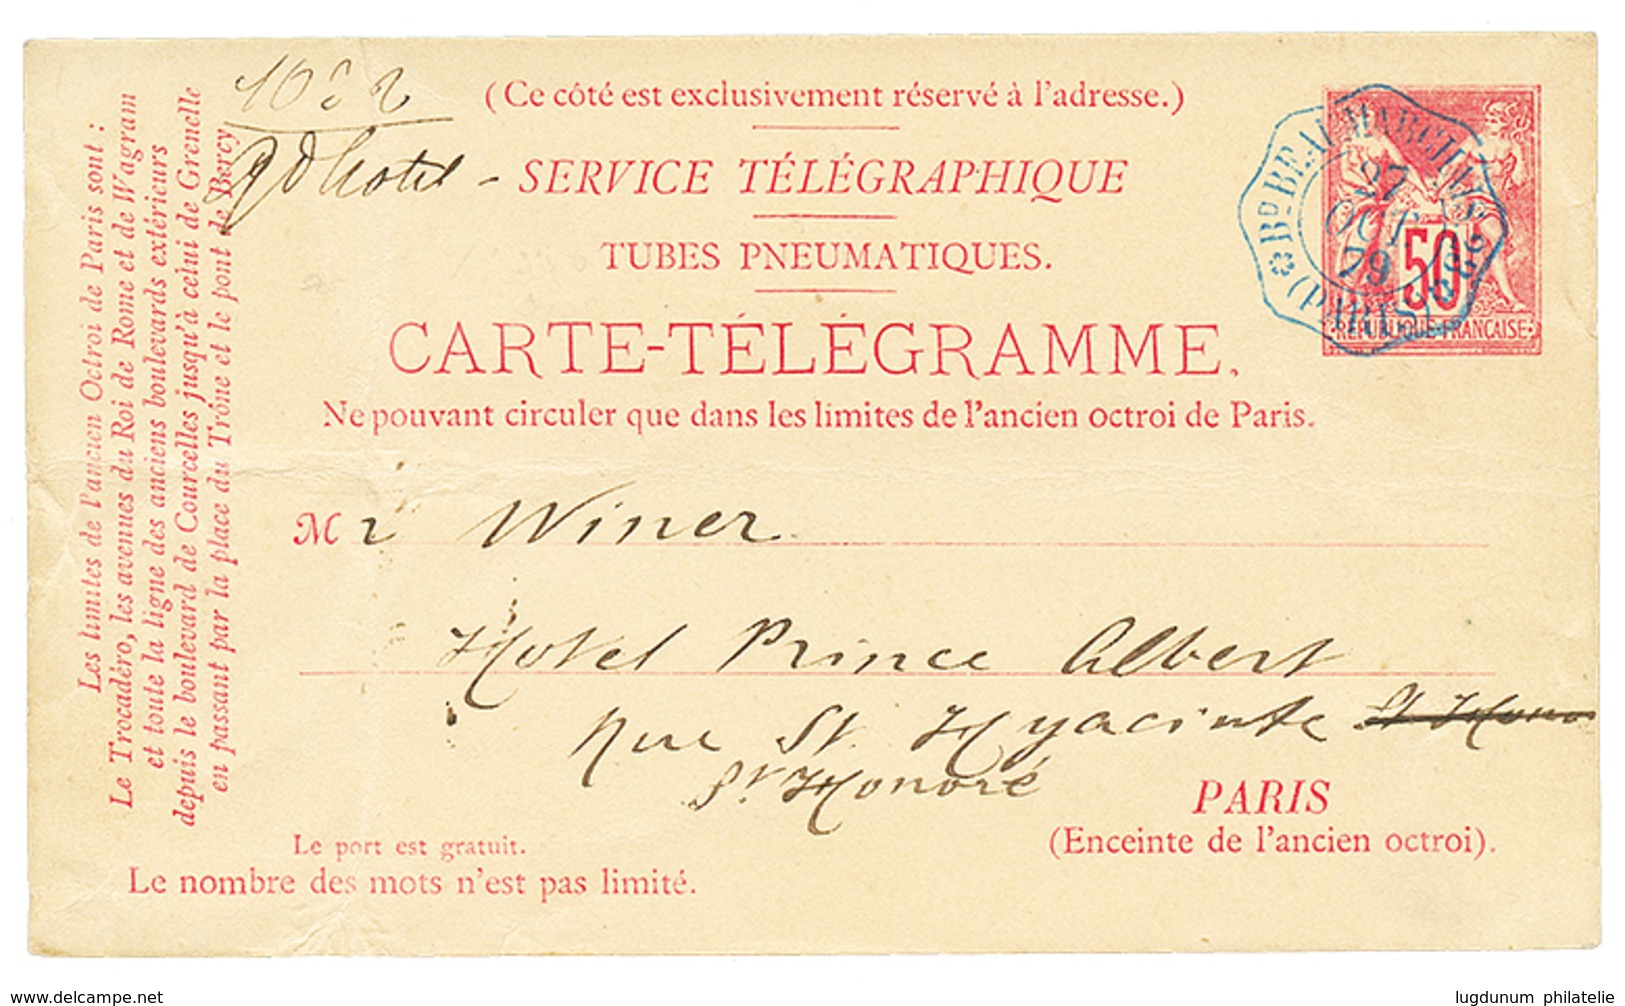 (Ce côté est exclusivement réservé à l'adresse.)
SERVICE TÉLÉGRAPHIQUE
TUBES PNEUMATIQUES.
CARTE-TÉLÉGRAMME.
Ne pouvant circuler que dans les limites de l'ancien octroi de Paris.
Les limites de l'ancien Octroi de Paris sont :
Le Trocadéro, les avenues du Roi de Rome et de Wagram
et toute la ligne des anciens boulevards extérieurs
depuis le boulevard de Courcelles jusqu'à celui de Grenelle
en passant par la place du Trône et le pont de Bercy
Bd BEAUMARCHAIS
27
OCT.
79
(PARIS)
50
RÉPUBLIQUE FRANÇAISE
Mr Winer
Hotel Prince Albert
Rue St Hyacinte
St Honoré
PARIS
(Enceinte de l'ancien octroi).
Le port est gratuit.
Le nombre des mots n'est pas limité.
www.delcampe.net
lugdunum philatelie